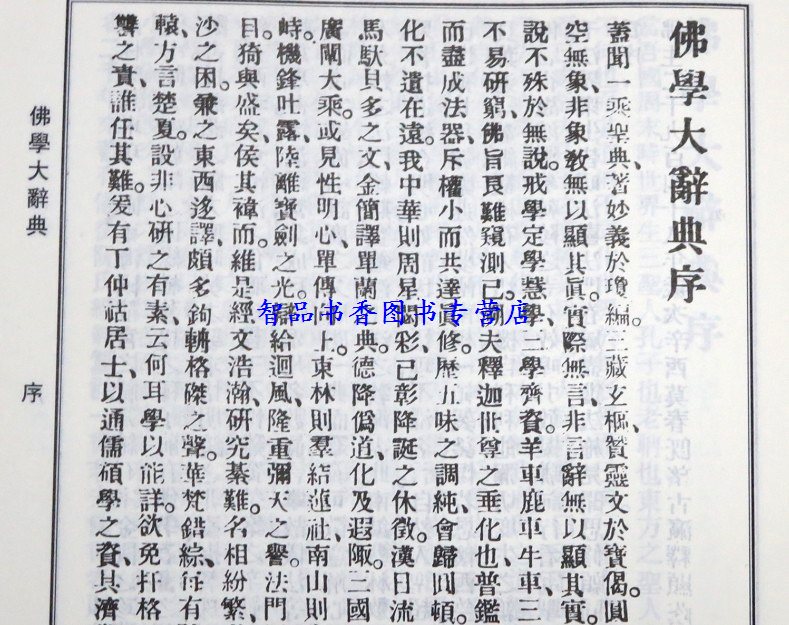 佛學大辭典序
蓋聞一乘聖典、著妙義於瓊編。三藏玄樞、贊靈文於寶偈。圓
空無象、非象敎無以顯其眞。實際無言、非言辭無以顯其實。
說不殊於無說。戒學定學慧學、三學齊資。羊車鹿車牛車、三
不易研窮。佛旨良難窺測已。溯夫釋迦世尊之垂化也、普鑑
而盡成法器、斥權小而共達眞修。歷五味之調純、會歸圓頓。
化不遺在遠。我中華則周星閟彩、已彰降誕之休徵。漢日流
馬馱貝多之文、金簡譯單蘭之典。德降僞道、化及遐陬。三國
廣闡大乘。或見性明心、單傳向上。東林則羣結蓮社、南山則
峙。機鋒吐露、陸離寶劍之光。識給迴風、隆重彌天之譽。法門
目猗與盛矣、侯其褘而。維是經文浩瀚、研究綦難。名相紛繁、
沙之困。兼之東西迻譯、頗多鉤輈格磔之聲。華梵錯綜、
轅方言楚夏。設非心研之有素、云何耳學以能詳。欲免扞格
讐之責、誰任其難。爰有丁仲祜居士、以通儒碩學之資、其濟
佛學大辭典
序
智品书香图书专营店